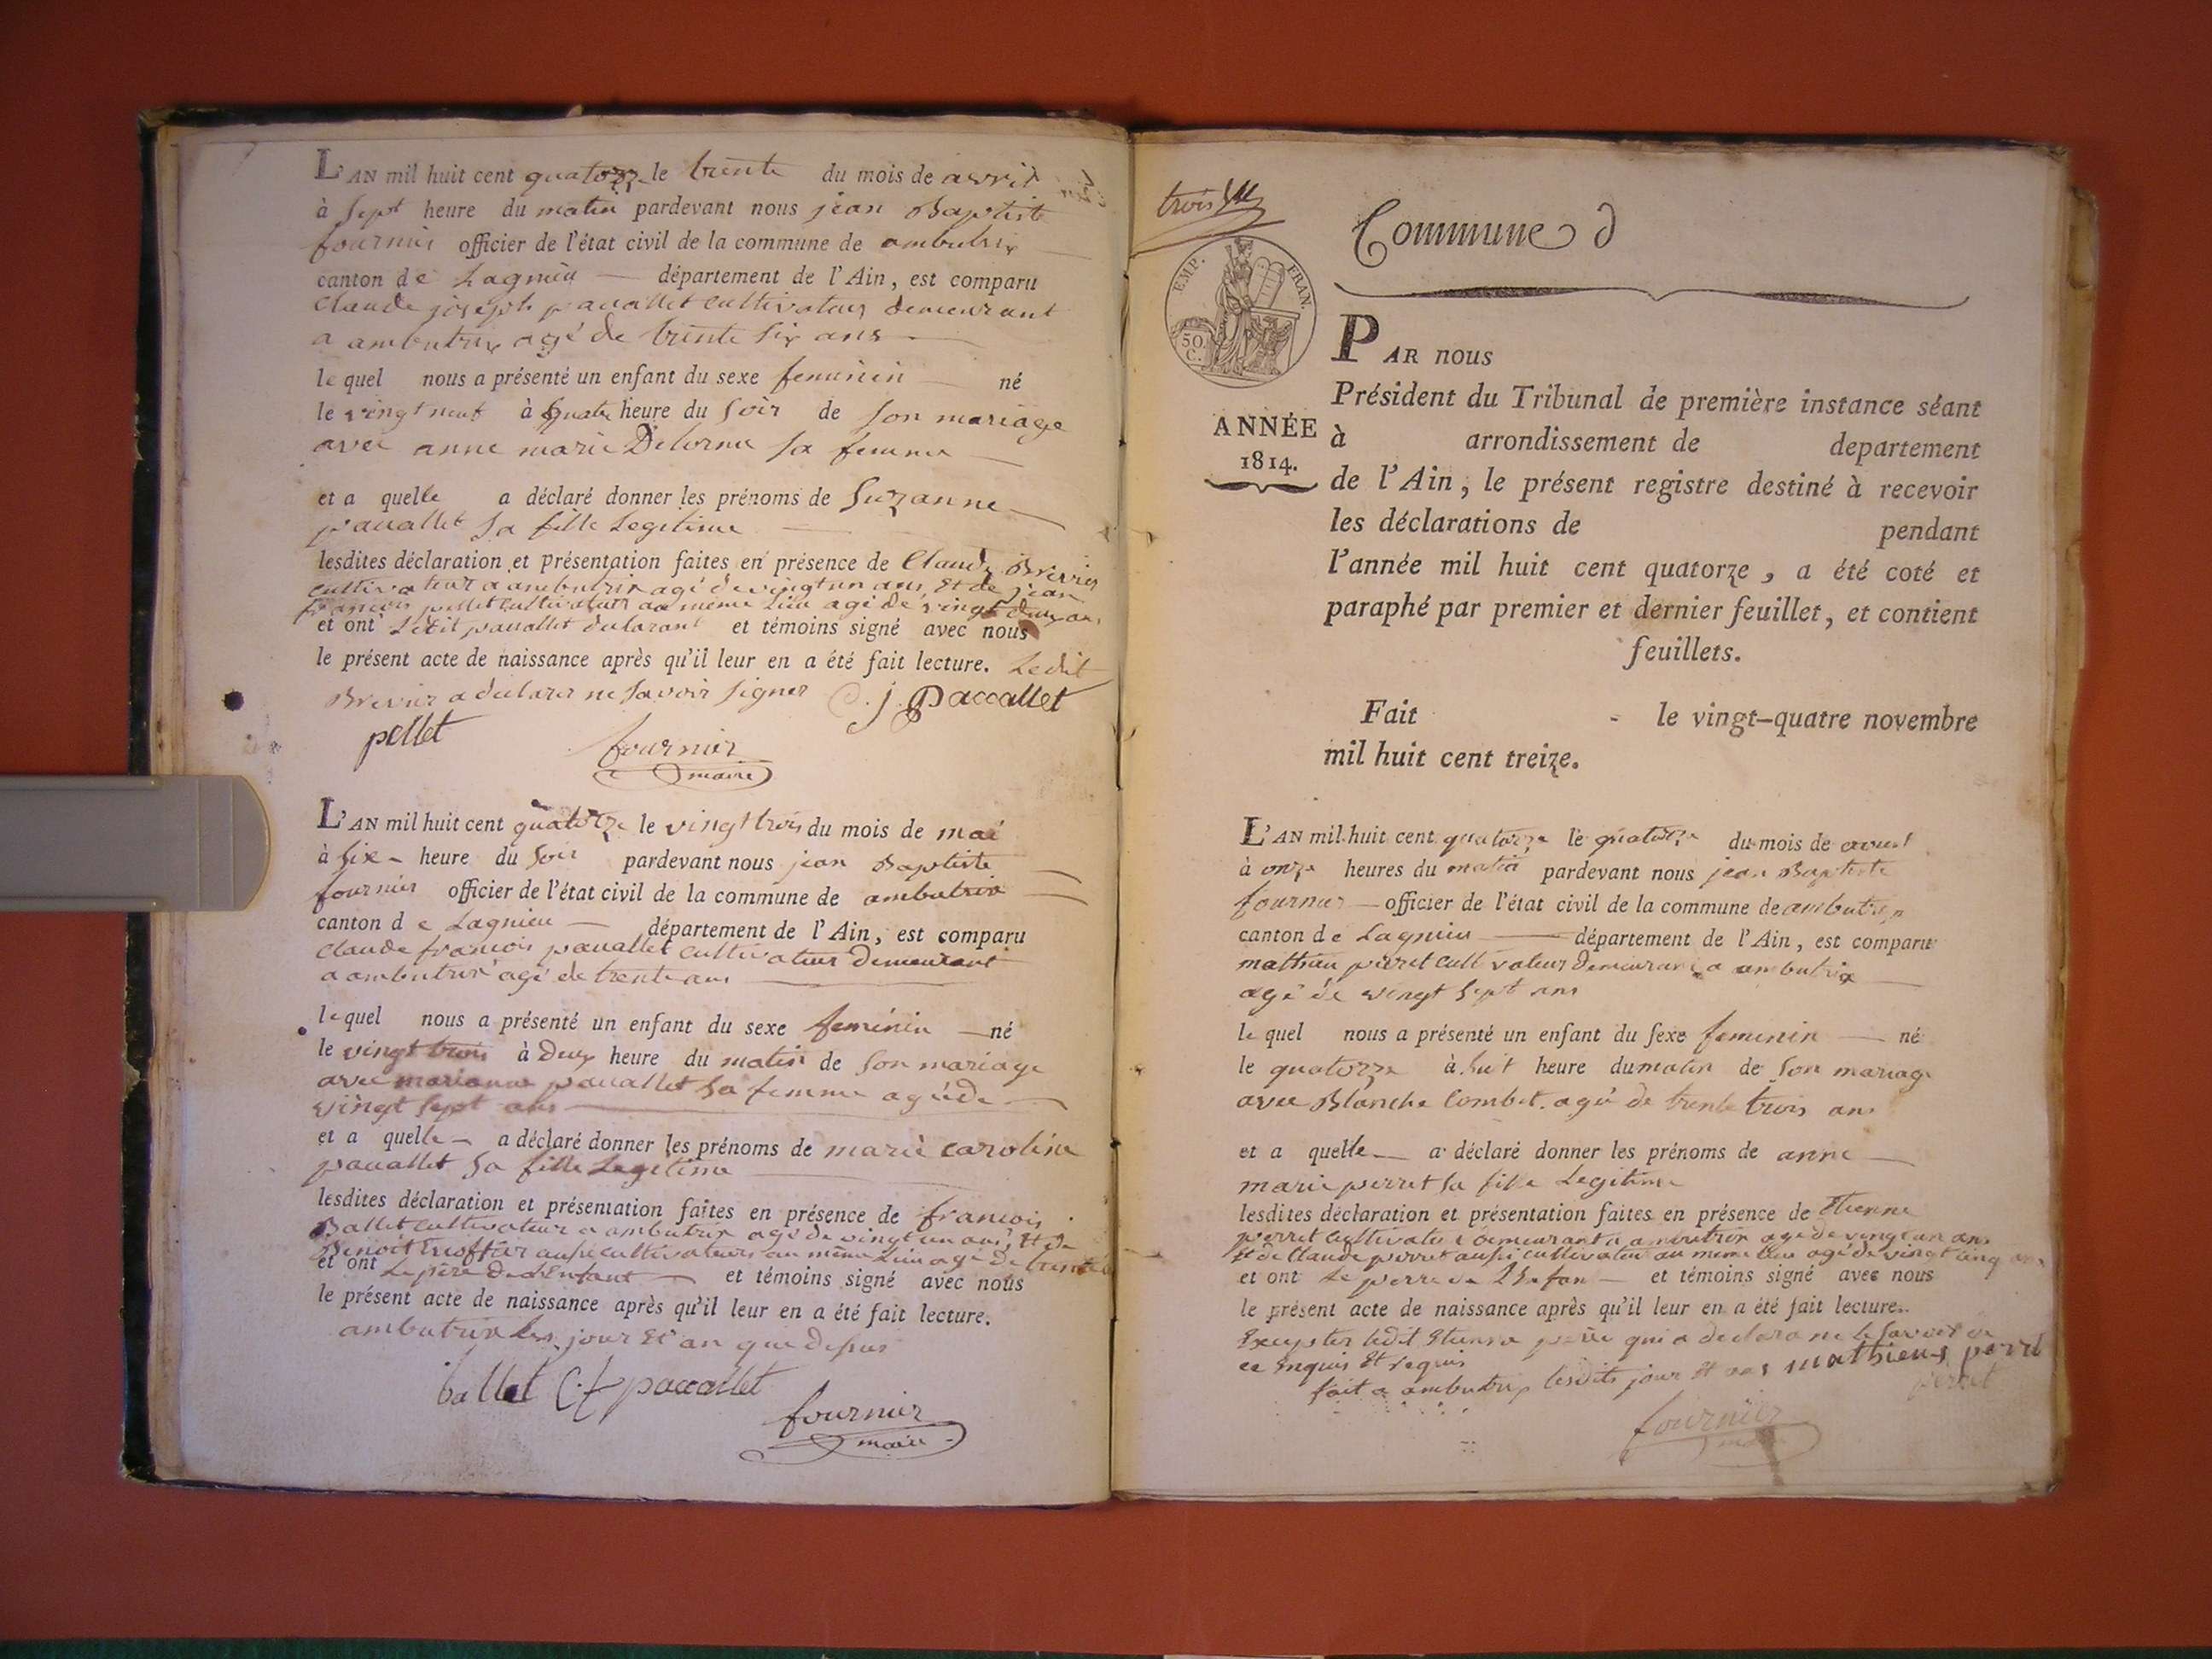 L'AN mil huit cent quatorze le trente du mois de avril
à sept heure du matin pardevant nous jean Baptiste
fournier officier de l'état civil de la commune de ambutrix
canton de Lagnieu département de l'Ain, est comparu
Claude joseph pacallet cultivateur demeurant
a ambutrix agé de trente six ans
le quel nous a présenté un enfant du sexe feminin né
le vingt neuf à quatre heure du soir de son mariage
avec anne marie Delorme sa femme
et a quelle a déclaré donner les prénoms de Suzanne
pacallet sa fille Legitime
lesdites déclaration et présentation faites en présence de Claude Brevier
cultivateur a ambutrix agé de vingt un ans, Et de jean
francois pellet cultivateur au meme Lieu agé de vingt deux ans
et ont Ledit pacallet declarant et témoins signé avec nous
le présent acte de naissance après qu'il leur en a été fait lecture. Ledit
Brevier a declarer ne savoir signer C. j. Paccallet
pellet fournier
maire
L'AN mil huit cent quatorze le vingt trois du mois de mai
à six heure du soir pardevant nous jean Baptiste
fournier officier de l'état civil de la commune de ambutrix
canton de Lagnieu département de l'Ain, est comparu
Claude francois pacallet cultivateur demeurant
a ambutrix agé de trente ans
le quel nous a présenté un enfant du sexe feminin né
le vingt trois à deux heure du matin de son mariage
avec marianne pacallet sa femme agée de
vingt sept ans
et a quelle a déclaré donner les prénoms de marie caroline
pacallet sa fille Legitime
lesdites déclaration et présentation faites en présence de francois
Ballet cultivateur a ambutrix agé de vingt un ans, Et de
Benoit aussi cultivateur au meme Lieu agé de trente
et ont Le père de L'Enfant et témoins signé avec nous
le présent acte de naissance après qu'il leur en a été fait lecture.
ambutrix les jour Et an que dessus
ballet C f paccallet
fournier
maire
trois
Commune d
EMP. FRAN.
50.
C.
ANNÉE
1814.
PAR nous
Président du Tribunal de première instance séant
à arrondissement de departement
de l'Ain, le présent registre destiné à recevoir
les déclarations de pendant
l'année mil huit cent quatorze, a été coté et
paraphé par premier et dernier feuillet, et contient
feuillets.
Fait le vingt-quatre novembre
mil huit cent treize.
L'AN mil huit cent quatorze le quatorze du mois de
à onze heures du matin pardevant nous jean Baptiste
fournier officier de l'état civil de la commune de ambutrix
canton de Lagnieu département de l'Ain, est comparu
mathieu perret cultivateur demeurant a ambutrix
agé de vingt sept ans
le quel nous a présenté un enfant du sexe feminin né
le quatorze à huit heure du matin de son mariage
avec Blanche Combet agé de trente trois ans
et a quelle a déclaré donner les prénoms de anne
marie perret sa fille Legitime
lesdites déclaration et présentation faites en présence de Etienne
perret cultivateur demeurant a ambutrix agé de vingt un ans
Et de Claude perret aussi cultivateur au meme lieu agé de vingt cinq ans
et ont Le perre de et témoins signé avec nous
le présent acte de naissance après qu'il leur en a été fait lecture.
Excepter ledit Etienne qui a declara ne le savoir
ce Enquis Et requis
fait a ambutrix lesdits jour et an mathieu perret
perret
fournier
maire